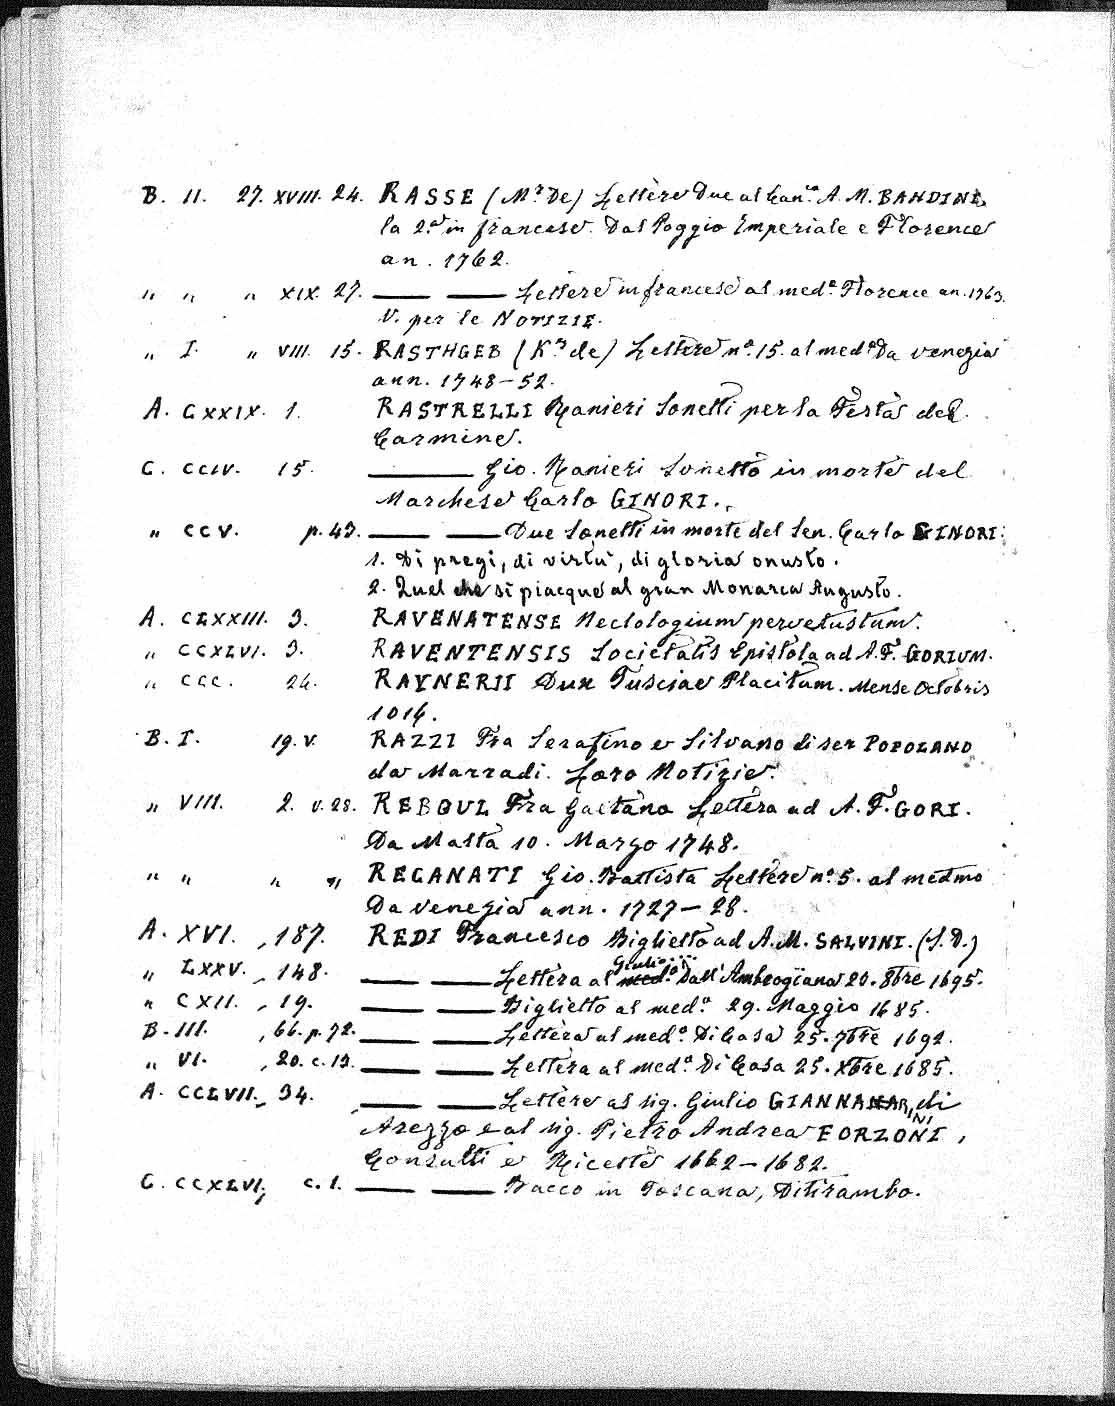 B. II. 27. XVIII. 24. RASSE (Mr. De) Lettere Due al Can.co A. M. BANDINI,
la 2.a in francese. Dal Poggio Imperiale e Florence
an. 1762.
" " " XIX. 27. —— —— Lettere in francese al med.o Florence an. 1763.
V. per le NOTIZIE.
" I. " VIII. 15. RASTHGEB (K.r de) Lettere n.o 15. al med.o Da Venezia
ann. 1748-52.
A. CXXIX. 1. RASTRELLI Ranieri Sonetti per la Festa del
Carmine.
C. CCIV. 15. —— Gio. Ranieri Sonetto in morte del
Marchese Carlo GINORI.
" CCV. p. 43. —— —— Due Sonetti in morte del Sen. Carlo GINORI:
1. Di pregi, di virtù, di gloria onusto.
2. Quel che sì piacque al gran Monarca Augusto.
A. CLXXIII. 3. RAVENATENSE Neclologium pervetustum.
" CCXLVI. 3. RAVENTENSIS Societatis Epistola ad A. F. GORIUM.
" CCC. 24. RAYNERII Dux Tusciae Placitum. Mense Octobris
1016.
B. I. 19. v. RAZZI Fra Serafino e Silvano di ser POPOLANO
da Marradi. Loro Notizie.
" VIII. 2. v. 28. REBOUL Fra Gaetano Lettera ad A. F. GORI.
Da Malta 10. Marzo 1748.
" " " " RECANATI Gio. Battista Lettere n.o 5. al medmo
Da Venezia ann. 1727-28.
A. XVI. , 187. REDI Francesco Biglietto ad A. M. SALVINI. (S. D.)
" LXXV. , 148. —— —— Lettera al med.o Giulio Dall' Ambrogiana 20. 8bre 1695.
" CXII. , 19. —— —— Biglietto al med.o 29. Maggio 1685.
B. III. , 66. p. 72. —— —— Lettera al med.o Di Casa 25. 7bre 1692.
" VI. , 20. c. 13. —— —— Lettera al med.o Di Casa 25. Xbre 1685.
A. CCLVII. , 34. —— —— Lettere al sig. Giulio GIANNARINI, di
Arezzo e al sig. Pietro Andrea FORZONI,
Consulti e Ricette 1662-1682.
C. CCXLVI, c. 1. —— —— Bacco in Toscana, Ditirambo.